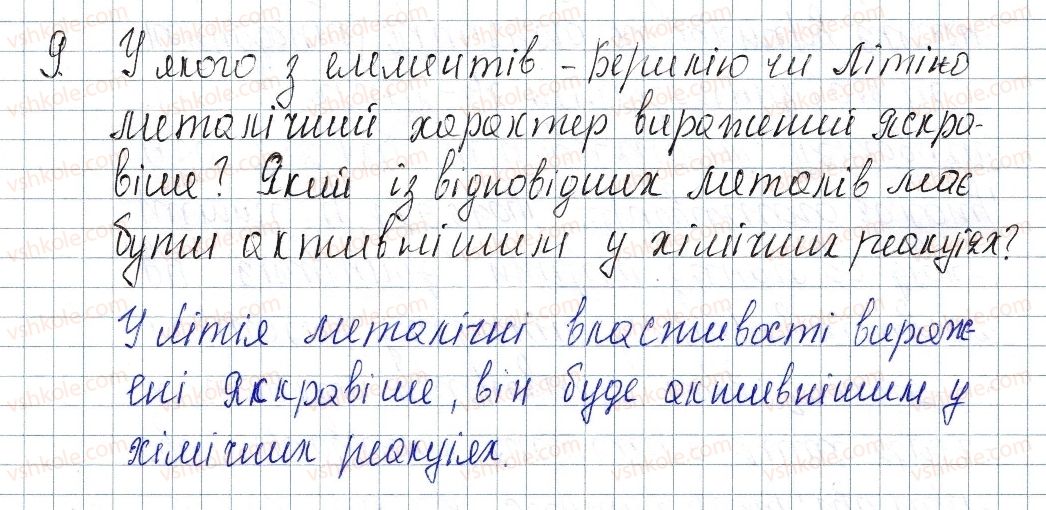 9. У якого з елементів – Берилію чи Літію
металічний характер виражений яскра-
віше? Який із відповідних металів має
бути активнішим у хімічних реакціях?
У Літія металічні властивості вираж-
ені яскравіше, він буде активнішим у
хімічних реакціях.